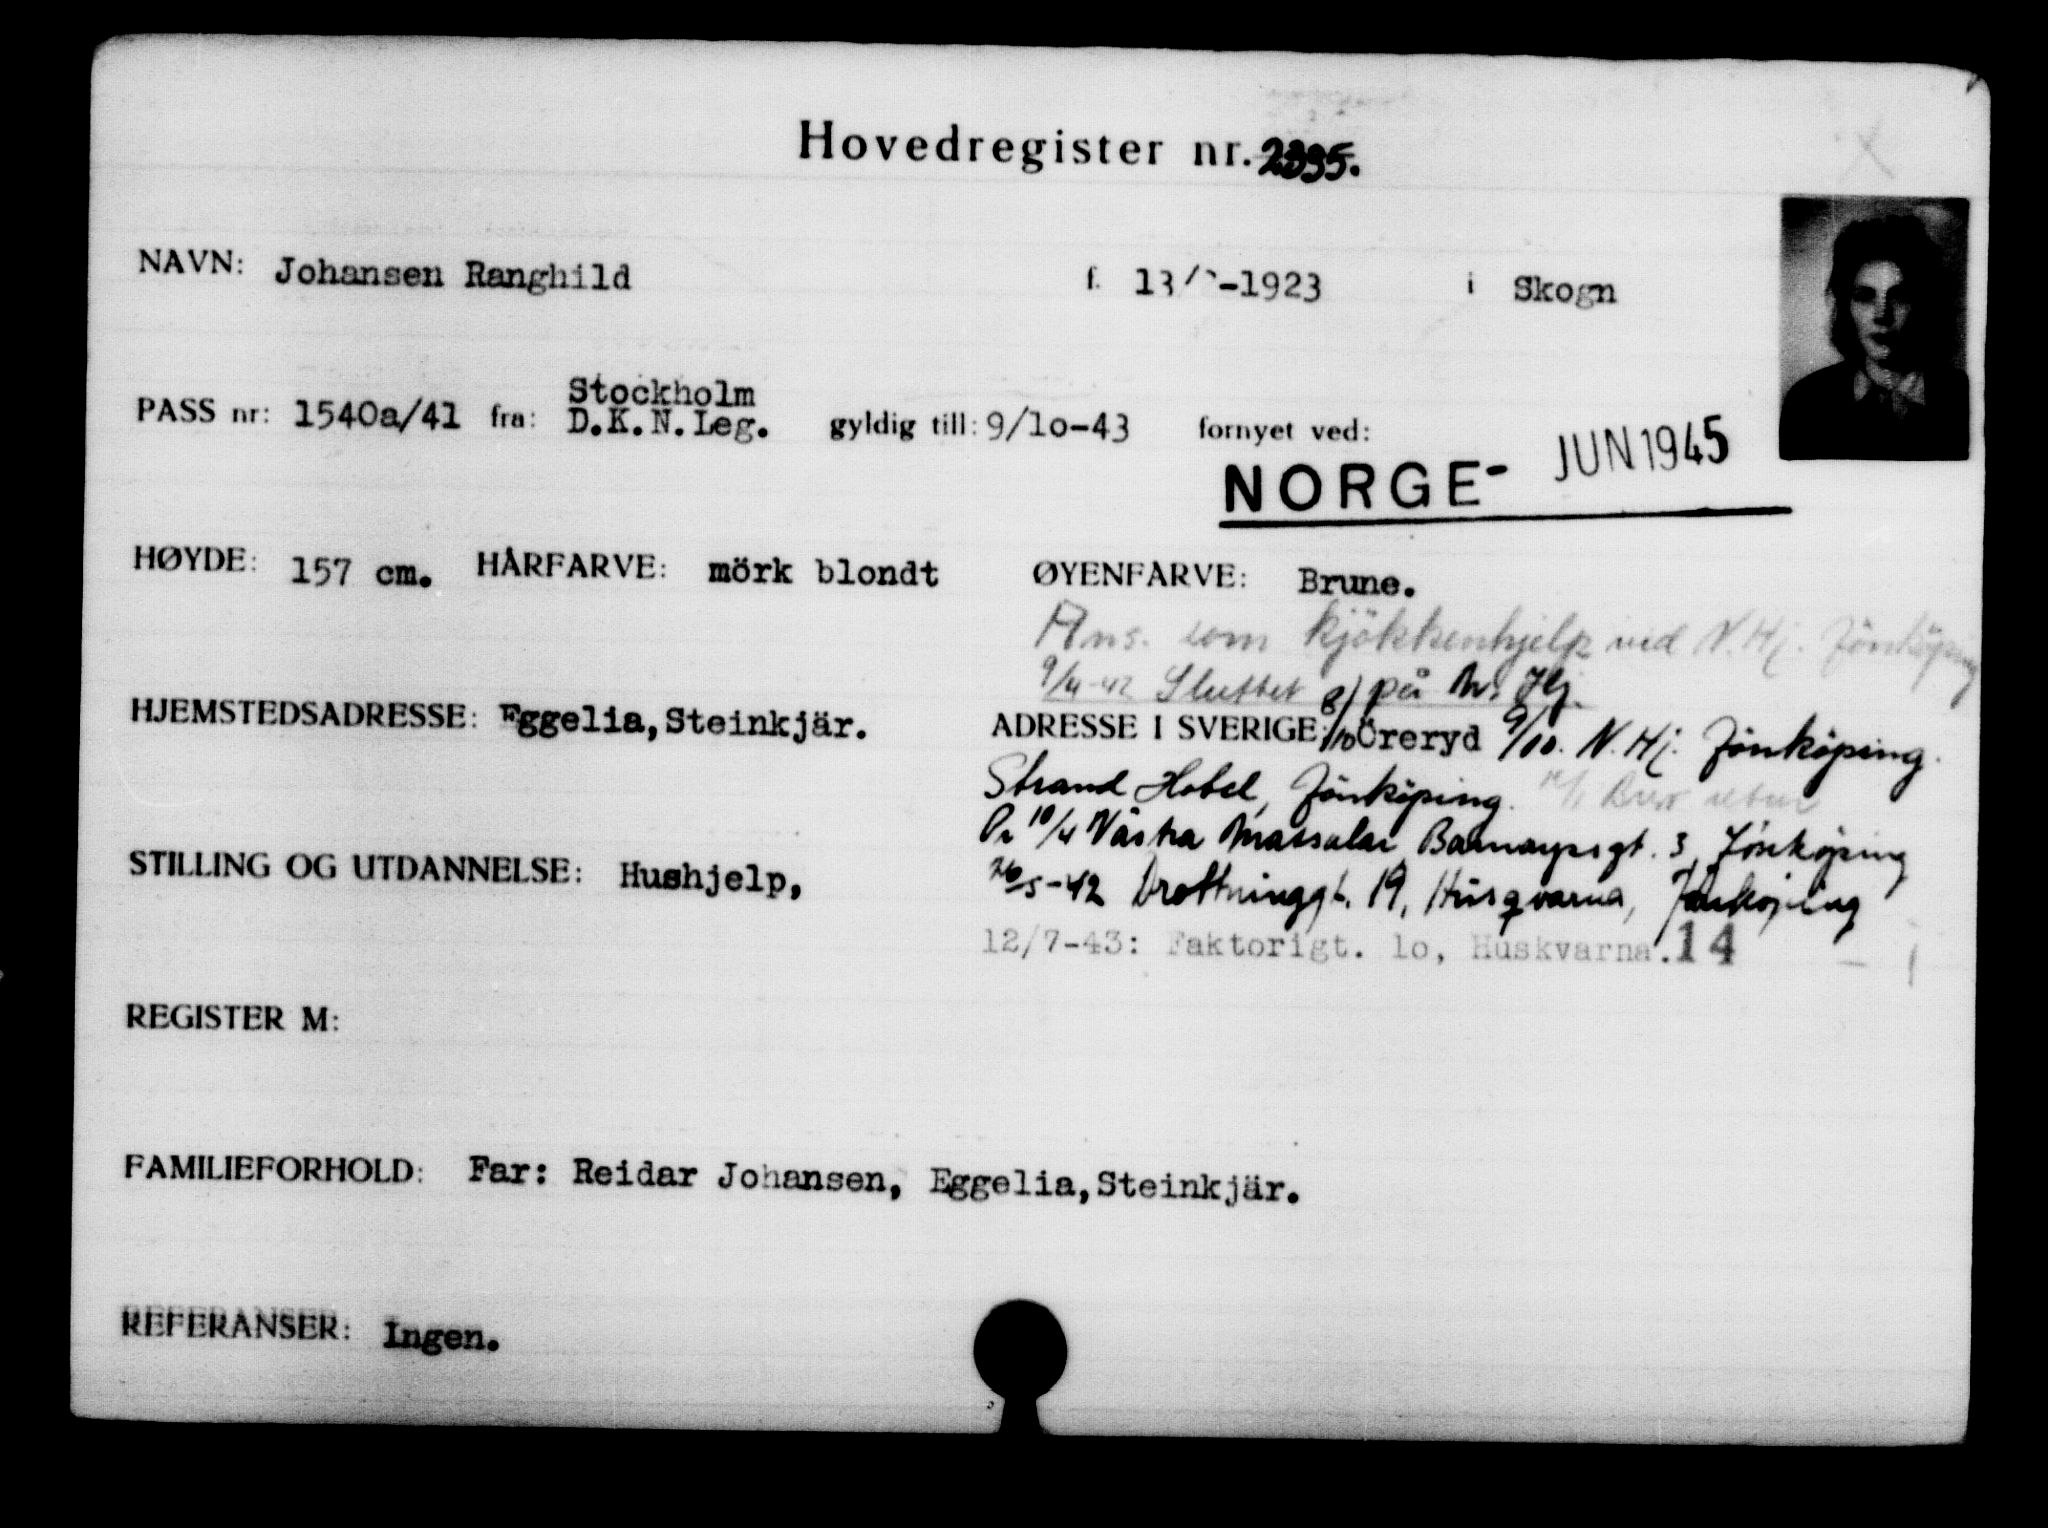 Hovedregister nr. 2395.
NAVN: Johansen Ranghild f. 13/ -1923 i Skogn
Stockholm
PASS nr: 1540a/41 fra: D.K.N.Leg. gyldig till: 9/1o-43 fornyet ved:
NORGE- JUN 1945
HØYDE: 157 cm. HÅRFARVE: mörk blondt ØYENFARVE: Brune.
Ans. som kjökkenhjelp ved N.Hj. Jönköping
9/4-42 Sluttet på N. Hj.
HJEMSTEDSADRESSE: Eggelia,Steinkjär. ADRESSE I SVERIGE: 8/10 Öreryd 9/10. N.Hj. Jönköping.
Strand Hotel, Jönköping. Brev retur
Pr 10/4 Västra 3, Jönköping
STILLING OG UTDANNELSE: Hushjelp, 26/5-42 Drottninggt. 19, Husqvarna, Jönköping
12/7-43: Faktorigt. 1o, Huskvarna. 14
REGISTER M:
FAMILIEFORHOLD: Far: Reidar Johansen, Eggelia,Steinkjär.
REFERANSER: Ingen.